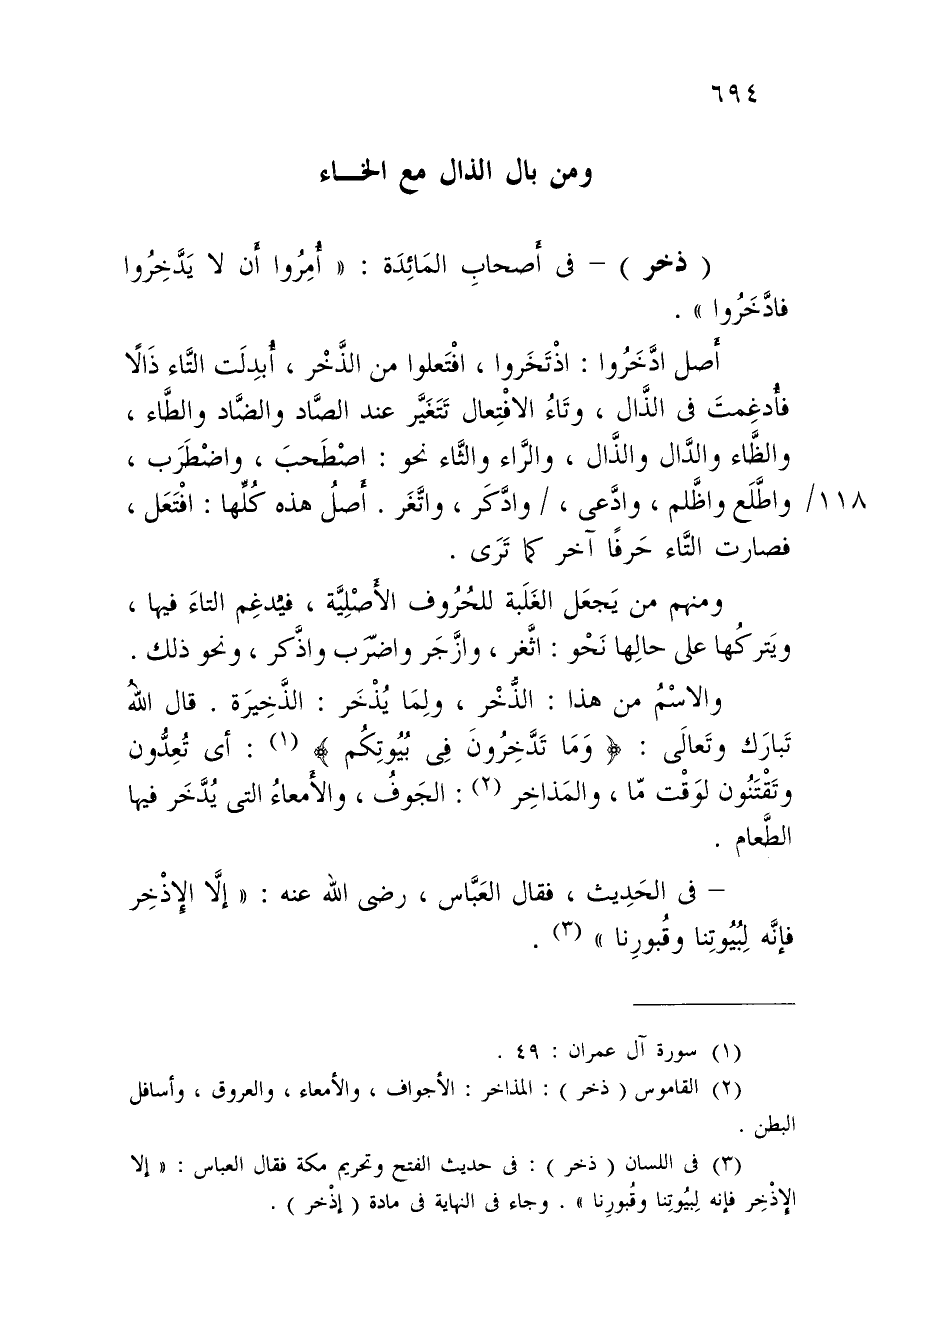 ٦٩٤
ومن بال الذال مع الخـــاء
( ذخر ) – فى أَصحابِ المَائِدَة : « أُمِرُوا أَن لا يَدَّخِرُوا
فادَّخَرُوا » .
أَصل ادَّخَرُوا : اذْتَخَروا ، افْتَعلوا من الذَّخْر ، أُبدِلَت التَّاء ذَالًا
فأُدغِمتَ فى الذَّال ، وتَاءُ الافْتِعال تَتَغَيَّر عند الصَّاد والضَّاد والطَّاء ،
والظَّاء والدَّال والذَّال ، والرَّاء والثَّاء نحو : اصْطَحبَ ، واضْطَرَب ،
١١٨/ واطَّلَع واظَّلم ، وادَّعى ، / وادَّكَر ، واتَّغَر . أَصلُ هذه كُلِّها : افْتَعَل ،
فصارت التَّاء حَرفًا آخر كما تَرَى .
ومنهم من يَجعَل الغَلَبة للحُرُوف الأَصْلِيَّة ، فيُدغِم التاءَ فيها ،
ويَتركُها على حالِها نَحْو : اثَّغر ، وازَّجَر واضّرَب واذَّكر ، ونحو ذلك .
والاسْمُ من هذا : الذُّخْر ، ولِمَا يُذْخَر : الذَّخِيرَة . قال اللهُ
تَبارَك وتَعالَى : ﴿ وَمَا تَدَّخِرُونَ فِى بُيُوتِكُم ﴾ (١) : أى تُعِدُّون
وتَقْتَنُون لوَقْت مّا ، والمَذاخِر (٢) : الجَوفُ ، والأَمعاءُ التى يُدَّخَر فيها
الطَّعام .
– فى الحَدِيث ، فقال العَبَّاس ، رضى الله عنه : « إلَّا الإِذْخِر
فإنَّه لِبُيُوتِنا وقُبورِنا » (٣) .
(١) سورة آل عمران : ٤٩ .
(٢) القاموس ( ذخر ) : المذاخر : الأجواف ، والأمعاء ، والعروق ، وأسافل
البطن .
(٣) فى اللسان ( ذخر ) : فى حديث الفتح وتحريم مكة فقال العباس : « إلا
الإذْخِر فإنه لِبيُوتنا وقُبورِنا » . وجاء فى النهاية فى مادة ( إذْخر ) .